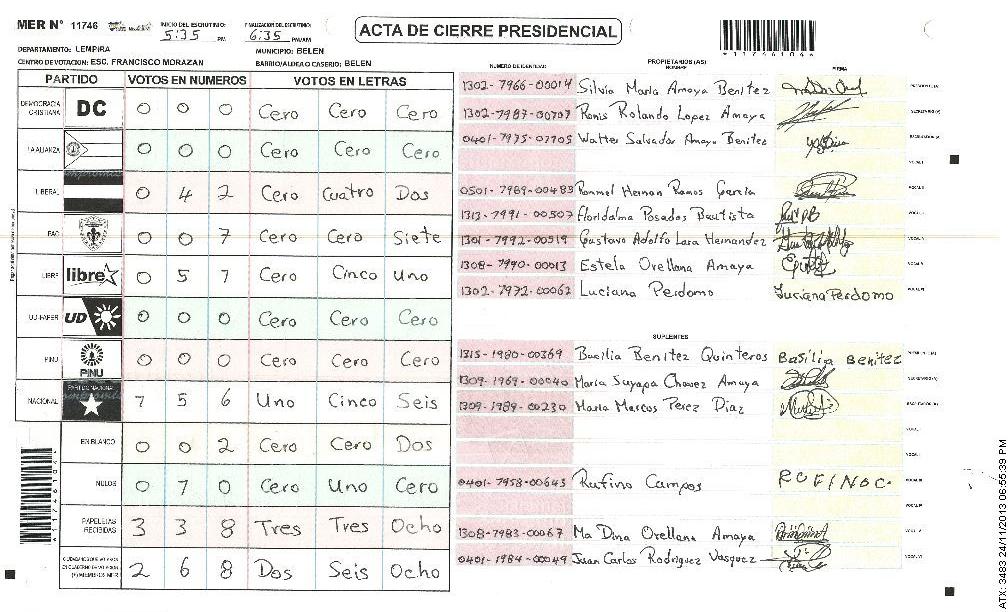 MER N° 11746 INICIO DEL ESCRUTINIO: 5:35 PM FINALIZACION DEL ESCRUTINIO: 6:35 PM/AM
ACTA DE CIERRE PRESIDENCIAL
DEPARTAMENTO: LEMPIRA MUNICIPIO: BELEN
CENTRO DE VOTACION: ESC. FRANCISCO MORAZAN BARRIO/ALDEA O CASERIO: BELEN
PARTIDO VOTOS EN NUMEROS VOTOS EN LETRAS
DEMOCRACIA CRISTIANA DC 0 0 0 Cero Cero Cero
LA ALIANZA 0 0 0 Cero Cero Cero
LIBERAL 0 4 2 Cero Cuatro Dos
PAC 0 0 7 Cero Cero Siete
LIBRE libre 0 5 1 Cero Cinco Uno
UD-FAPER UD 0 0 0 Cero Cero Cero
PINU PINU 0 0 0 Cero Cero Cero
NACIONAL PARTIDO NACIONAL 1 5 6 Uno Cinco Seis
EN BLANCO 0 0 2 Cero Cero Dos
NULOS 0 1 0 Cero Uno Cero
PAPELETAS RECIBIDAS 3 3 8 Tres Tres Ocho
2 6 8 Dos Seis Ocho
NUMERO DE IDENTIDAD PROPIETARIOS (AS) NOMBRE FIRMA
1302-1966-00014 Silvia Maria Amaya Benitez
1302-1987-00707 Ronis Rolando Lopez Amaya
0401-1975-01105 Walter Salvador Amaya Benitez
0501-1989-00483 Rommel Hernan Ramos Garcia
1313-1991-00507 Floridalma Posadas Bautista
1301-1992-00519 Gustavo Adolfo Lara Hernandez
1308-1990-00013 Estela Orellana Amaya
1302-1972-00062 Luciana Perdomo Luciana Perdomo
SUPLENTES
1315-1980-00369 Bacilia Benitez Quinteros Basilia Benitez
1309-1969-00040 Maria Suyapa Chavez Amaya
1309-1989-00230 Maria Marcos Perez Diaz
0401-1958-00643 Rufino Campos ROFINOC.
1308-1983-00067 Ma Dina Orellana Amaya
0401-1984-00049 Juan Carlos Rodriguez Vasquez
ATX: 3483 24/11/2013 06:55:39 PM